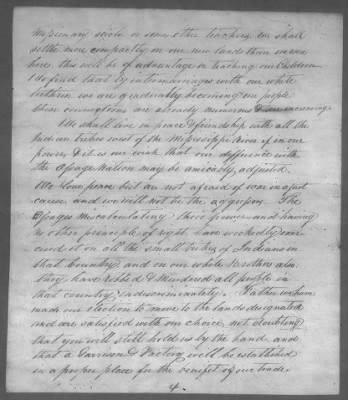 missionary schools or some other teachers, we shall
settle more compactly on our new lands than we were
here, this will be of advantage in teaching our Children
I do find that by intermarriages with our white
brethren we are gradually becoming one people
these connexions are already numerous & increasing.
We shall live in peace & friendship with all the
Indian tribes west of the Mississippi River if in our
power, & it is our wish that our difference with
the Osage Nation may be amicably adjusted.
We love peace but are not afraid of war in a just
cause and we will not be the aggressors. The
Osages miscalculating their power and having
no other principle of right have wickedly exer
cised it on all the small tribes of Indians in
that Country and on our white Brothers also.
they have robbed & Murdered all people in
that country indiscriminately. Father we have
made our election to move to the lands designated
and are satisfied with our choice, not doubting
that you will still hold us by the hand and
that a Garrison & Factory will be established
in a proper place for the benefit of our trade.
4.